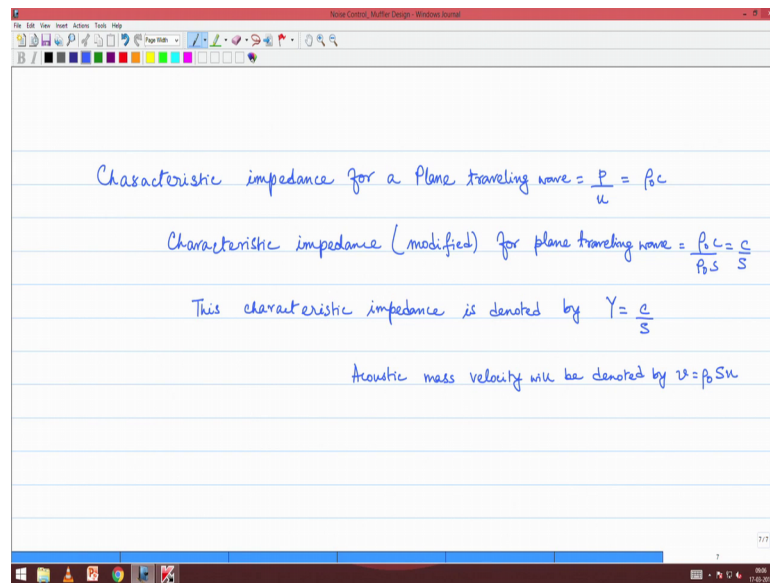 Noise Control_Muffler Design - Windows Journal
File Edit View Insert Actions Tools Help
Page Width
B I
Characteristic impedance for a Plane traveling wave = p/u = ρ₀c
Characteristic impedance (modified) for plane traveling wave = ρ₀c/ρ₀S = c/S
This characteristic impedance is denoted by Y = c/S
Acoustic mass velocity will be denoted by v = ρ₀Su
7/7
7
09:06